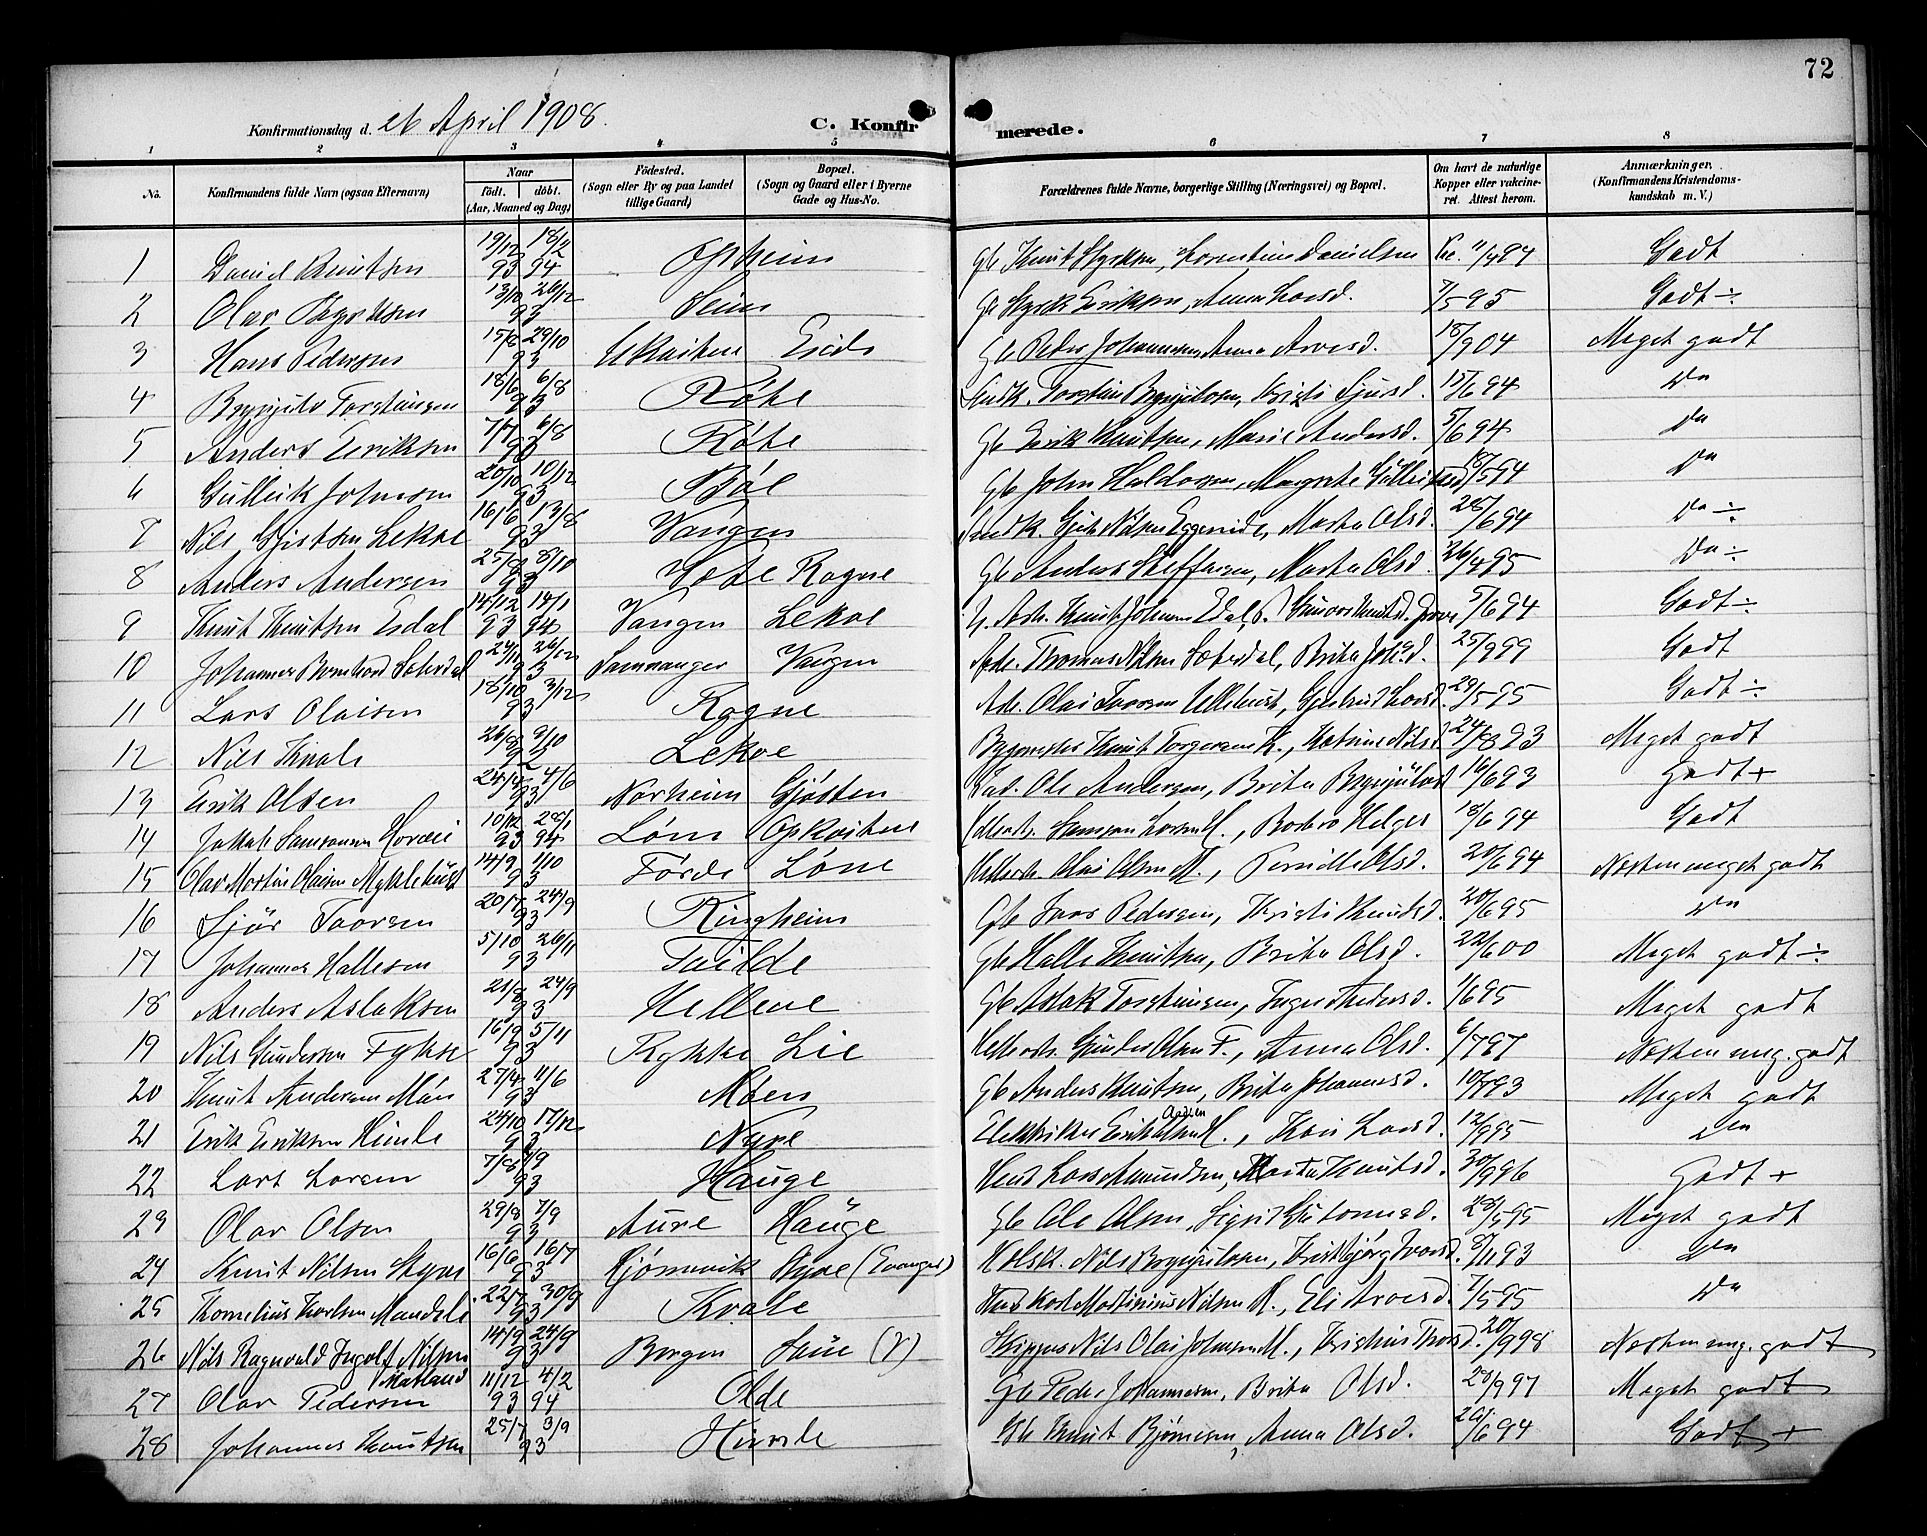 72
Konfirmationsdag d. 26 April 1908.
C. Konfirmerede.
1 2 3 4 5 6 7 8
No.
Konfirmandens fulde Navn (ogsaa Efternavn)
Naar
födt. döbt.
(Aar, Maaned og Dag)
Födested.
(Sogn eller By og paa Landet tillige Gaard)
Bopæl.
(Sogn og Gaard eller i Byerne Gade og Hus-No.
Forældrenes fulde Navne, borgerlige Stilling (Næringsvei) og Bopæl.
Om havt de naturlige Kopper eller vakcineret. Attest herom.
Anmærkninger.
(Konfirmandens Kristendomskundskab m. V.)
1 David Knutsen 19/12 93 18/2 94 Opheim Gb Knut Styrksen, Lorentine Danielsen 11/4 94 Godt
2 Olav Styrksen 13/10 26/12 93 Seim Gb Styrk Eriksen, Anna Larsd. 7/5 95 Godt ÷
3 Hans Pedersen 15/8 29/10 93 Gb Peder Johannesen, Anna Arvesd. 18/9 04 Meget godt
4 Brynjulv Torsteinsen 18/6 6/8 93 Røte Torstein Brynjulvsen, Kristi Sjursd. 15/6 94 Do
5 Anders Eriksen 7/7 6/8 93 Røte Gb Erik Knutsen, Marie Andersd. 5/6 94 Do
6 Gulleik Johnsen 20/10 10/12 93 Bøe Gb John Haldorsen, Margrete 94 Do
7 Nils Gjertsen Lekve 16/6 13/8 93 Vangen Nilsen Eggereide, Marta Olsd. 28/6 94 Do ÷
8 Anders Andersen 25/8 8/10 93 Rogne Gb Anders Steffensen, Marta Olsd. 26/4 95 Do ÷
9 Knut Knutsen Esdal 14/12 93 14/1 94 Vangen Lekve 5/6 94 Godt ÷
10 Johannes Bernhard Sæterdal 24/11 26/12 93 Samnanger Vangen Arb. Thomas Nilsen Sæterdal, Brita Johsd. 25/9 99 Godt
11 Lars Olaisen 18/10 3/12 93 Rogne Arb. Olai Ivarsen, Gjertrud Larsd. 29/5 95 Godt ÷
12 Nils Kvale 26/8 9/10 92 Lekve Bygmester Knut Torgersen K., Katrine Nilsd. 24/8 93 Meget godt
13 Erik Olsen 24/4 4/6 93 Norheim Gjøsten Ole Andersen, Brita Brynjulvsd. 16/6 93 Godt +
14 Jakob Samsonsen Horvei 10/12 93 28/1 94 Løne Opkviten Samson Larsen H., Barbro Helges 18/6 94 Godt
15 Olav Martin Olaisen Myklebust 14/9 1/10 93 Førde Løne Olai Olsen M., Pernille Olsd. 20/6 94 Næsten meget godt
16 Sjur Ivarsen 20/7 24/9 93 Ringheim Gb Ivar Pedersen, Kristi Knutsd. 20/6 95 Do
17 Johannes Hallesen 5/10 26/11 93 Tvilde Gb Halle Knutsen, Brita Olsd. 22/6 00 Meget godt ÷
18 Anders Aslaksen 21/8 24/9 93 Hellene Gb Aslak Torsteinsen, Inger Andersd. 1/6 95 Meget godt
19 Nils Gundersen Fykse 16/9 5/11 93 Rykke Lie Gunder Olsen F., Anna Olsd. 6/7 97 Næsten meg. godt
20 Knut Andersen Møen 27/4 11/6 93 Møen Gb Anders Knutsen, Brita Johannesd. 10/7 93 Meget godt
21 Erik Eriksen Himle 24/10 17/12 93 Nyre Elektriker Erik H., Kari Larsd. 12/9 95 Do
22 Lars Larsen 7/8 93 Hauge Lars Amundsen, Marta Knutsd. 30/9 96 Godt +
23 Olav Olsen 29/8 7/9 93 Aure Hauge Gb Ole Olsen, Sigrid Guttormsd. 28/5 95 Meget godt
24 Knut Nilsen Styve 16/6 16/7 93 Gjørnevik Styve (Evanger) Nils Brynjulvsen, Herbjørg Ivarsd. 8/11 93 Do
25 Kornelius Karlsen Mandale 22/7 30/9 93 Kvale Karl Martinius Nilsen M., Eli Arvesd. 7/5 95 Do
26 Nils Ragnvald Ingolf Nilsen Matland 14/9 24/9 93 Bergen Saue (V) Skipper Nils Olai Johnsen M., Kristine Thorsd. 20/9 98 Næsten meg. godt
27 Olav Pedersen 11/12 93 4/2 94 Olde Gb Peder Johannesen, Brita Olsd. 20/9 97 Meget godt
28 Johannes Knutsen 25/7 3/9 93 Himle Gb Knut Bjørnesen, Anna Olsd. 29/6 94 Godt +